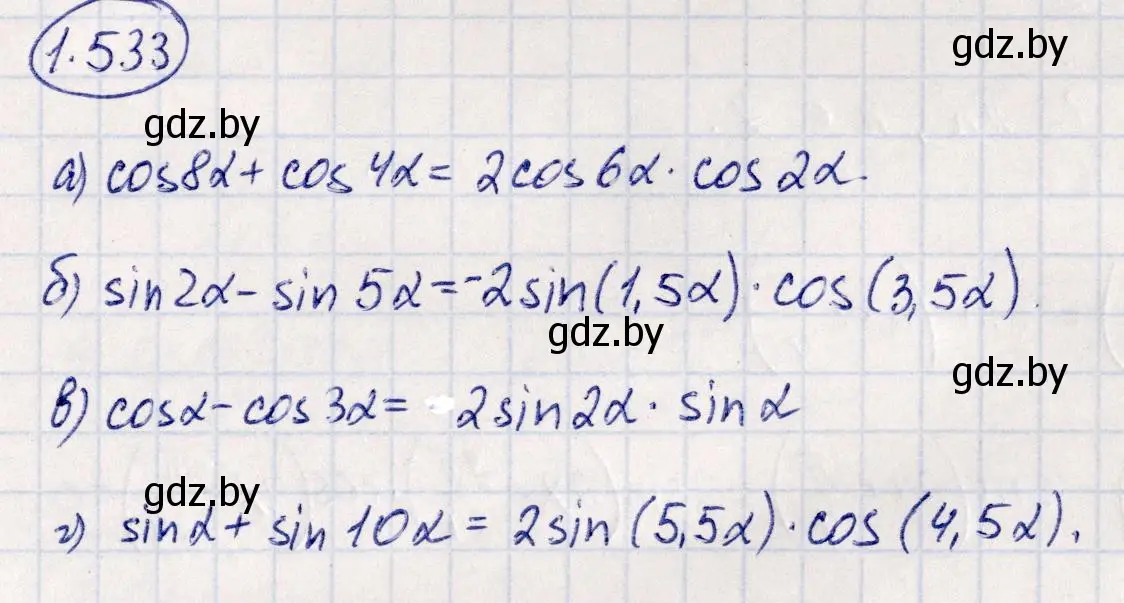 1.533
gdz.by
gdz.by
а) cos8α + cos 4α = 2cos6α · cos2α.
б) sin2α - sin 5α = -2sin(1,5α) · cos(3,5α).
gdz.by
gdz.by
в) cosα - cos3α = 2sin2α · sinα
gdz.by
г) sinα + sin10α = 2sin(5,5α) · cos(4,5α).